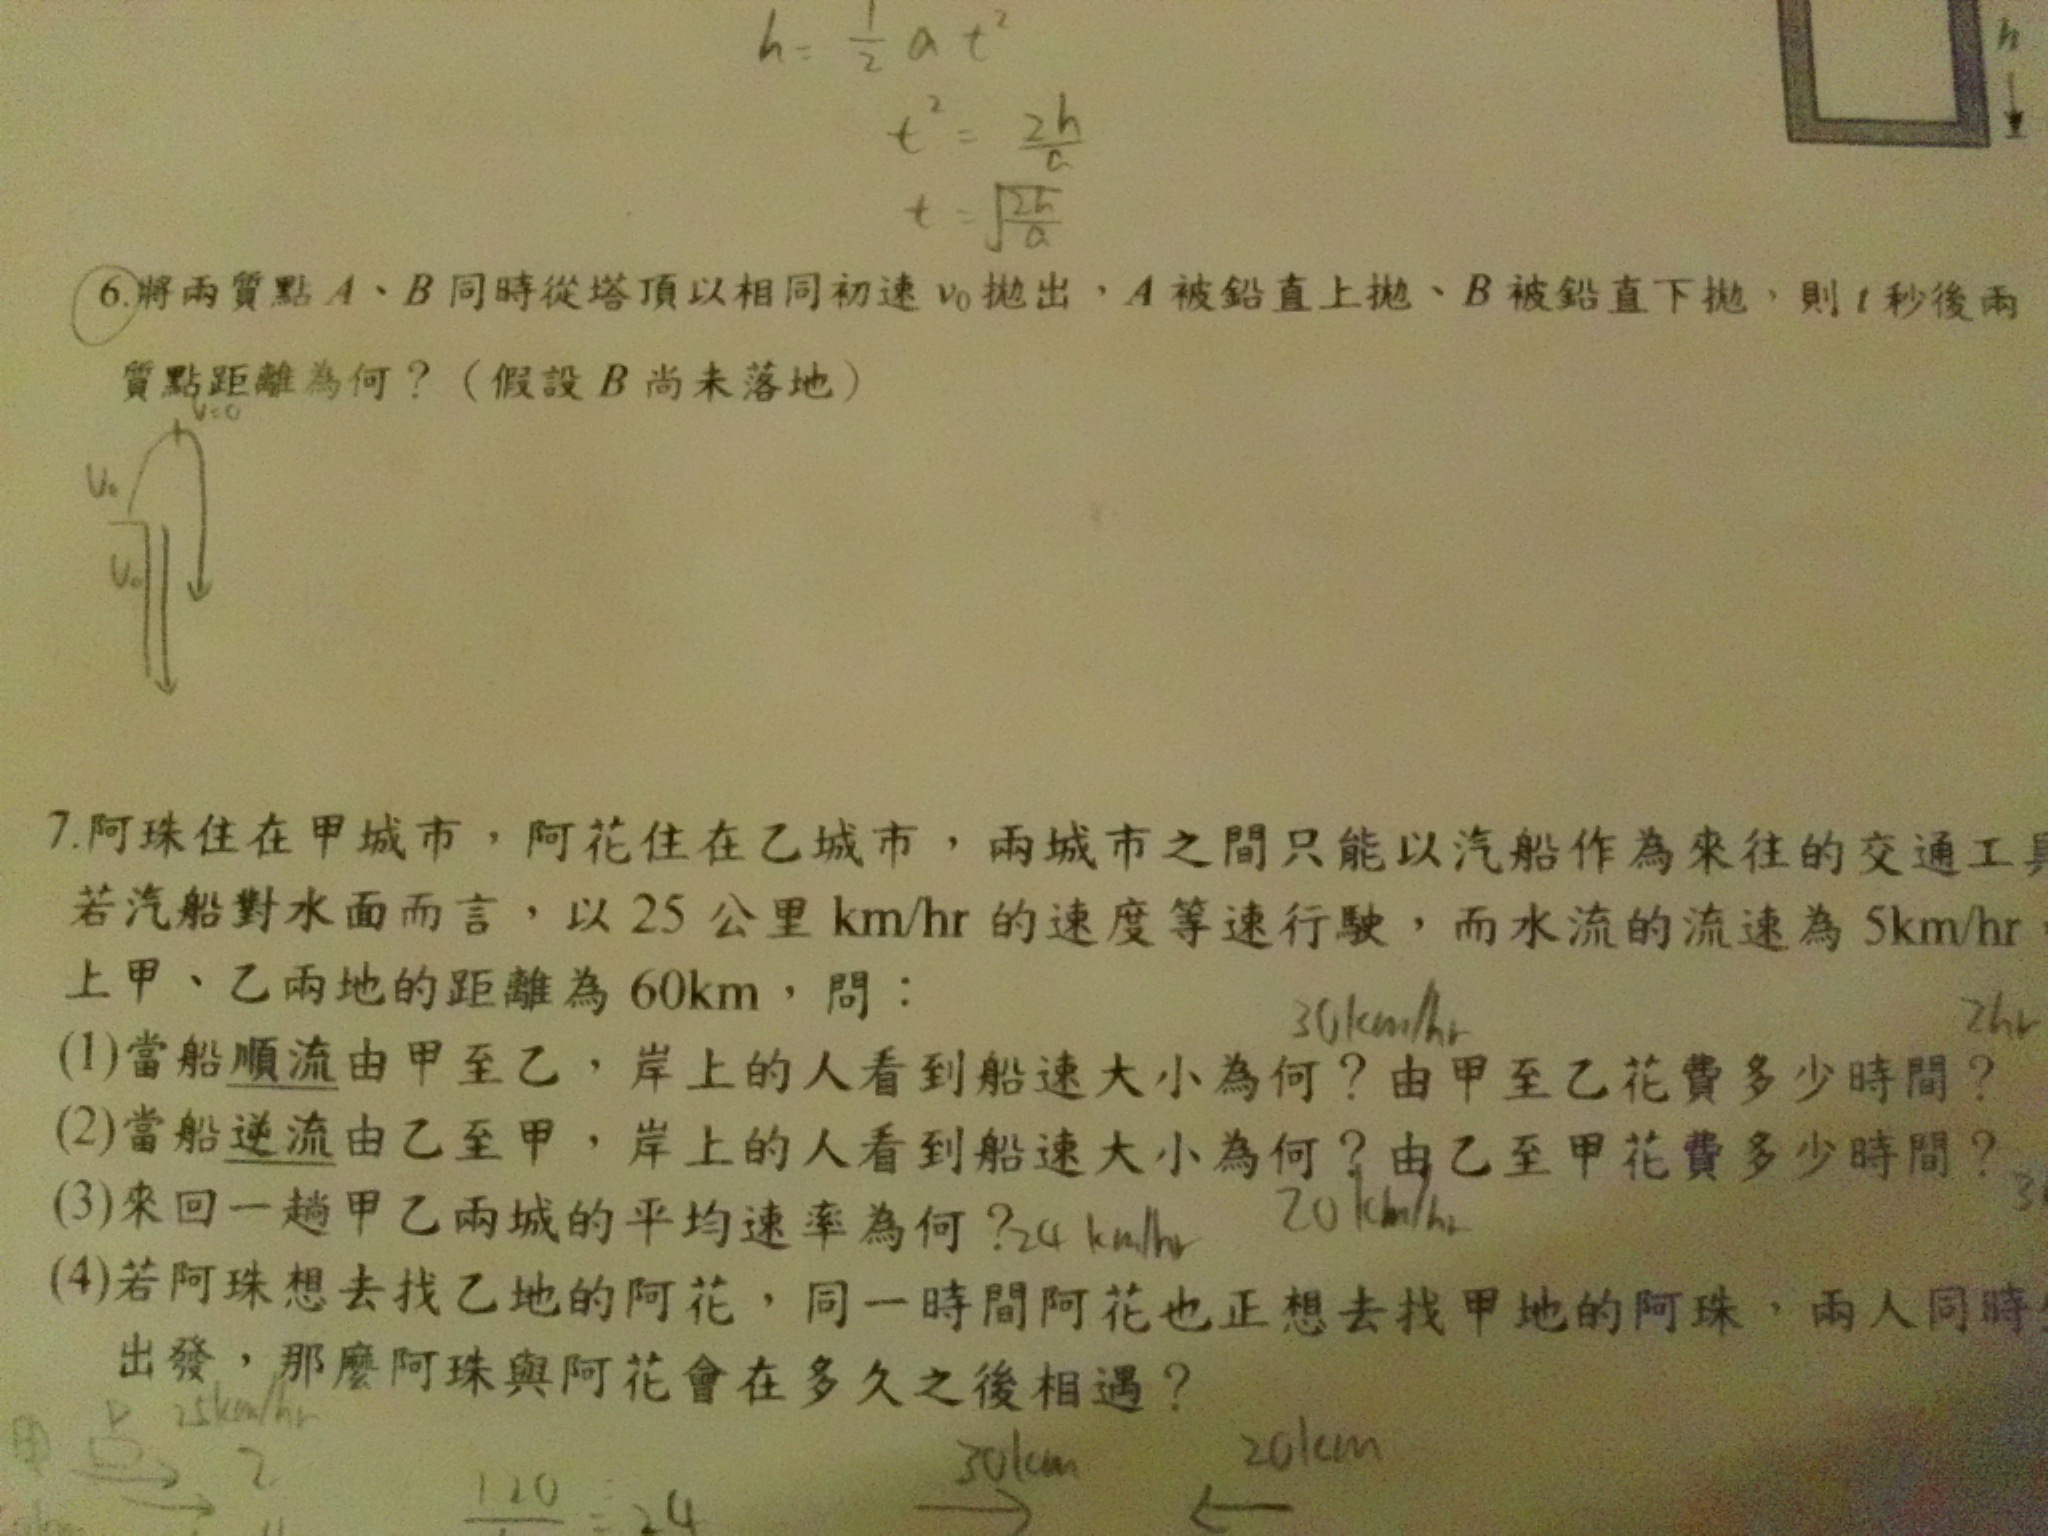 h = 1/2 a t²
h
t² = 2h/a
t = √2h/a
6.將兩質點 A、B 同時從塔頂以相同初速 v₀ 拋出，A 被鉛直上拋、B 被鉛直下拋，則 t 秒後兩
質點距離為何？（假設 B 尚未落地）
v=0
v₀
v₀
7.阿珠住在甲城市，阿花住在乙城市，兩城市之間只能以汽船作為來往的交通工具
若汽船對水面而言，以 25 公里 km/hr 的速度等速行駛，而水流的流速為 5km/hr，
上甲、乙兩地的距離為 60km，問：
30km/hr 2hr
(1)當船順流由甲至乙，岸上的人看到船速大小為何？由甲至乙花費多少時間？
(2)當船逆流由乙至甲，岸上的人看到船速大小為何？由乙至甲花費多少時間？
20km/hr
(3)來回一趟甲乙兩城的平均速率為何？24 km/hr
(4)若阿珠想去找乙地的阿花，同一時間阿花也正想去找甲地的阿珠，兩人同時
出發，那麼阿珠與阿花會在多久之後相遇？
甲 25km/hr 乙
120 = 24 30km 20km